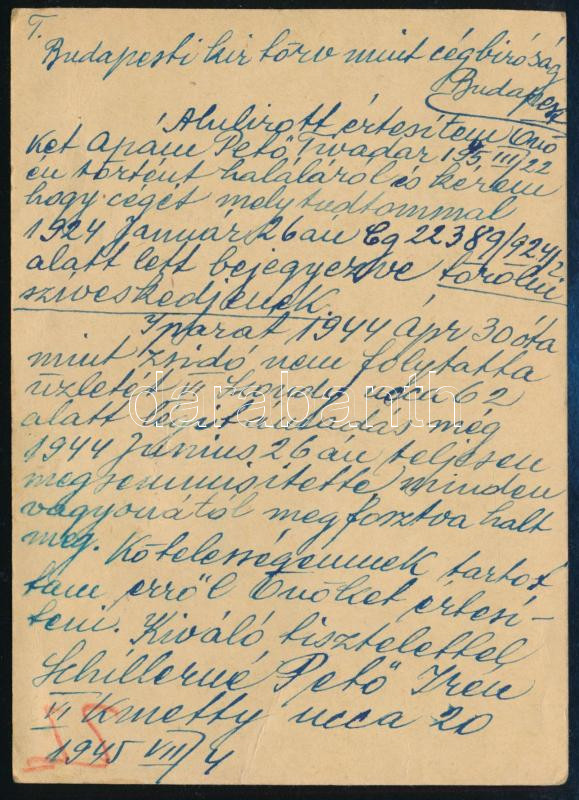 T.
Budapesti kir törv mint cégbiróság
Budapest
Alulirott értesitem Önö
ket apám Pető Tivadar 1945 III/22
én történt haláláról és kérem
hogy cégét mely tudtommal
1924 Január 26 án Cg 22389/924/2
alatt lett bejegyezve törölni
sziveskedjenek.
Iparát 1944 ápr 30 óta
mint zsidó nem folytatta
üzletét VI Szondy ucca 62
alatt légitámadás még
1944 Junius 26 án teljesen
megsemmisitette, minden
vagyonától megfosztva halt
meg. Kötelességemnek tartot
tam erről Önöket értesi-
teni. Kiváló tisztelettel
Schillerné Pető Irén
VI Kmetty ucca 20
1945 VIII/4
darabanth.com